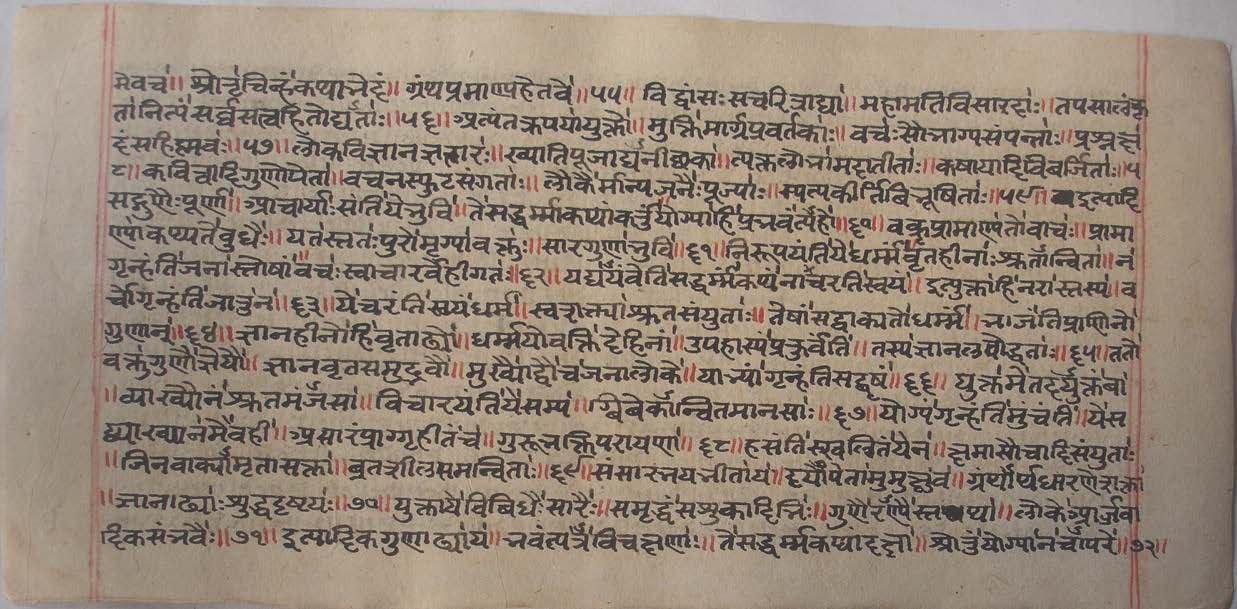 मेवच॥ श्रोतृचिन्हकथाभेदं॥ ग्रंथप्रमाणहेतवे॥५५॥ विद्वांसःसच्चरित्राद्या॥ महामतिविसारदाः॥ तपसालंकृ
तानित्यंसर्वसत्वहितोद्यताः॥५६॥ प्रत्यंतरूपयायुक्तो॥ मुक्तिमार्गप्रवर्तकाः॥ वचःसौभाग्यसंपन्नाः॥
दंसहिस्मवः॥५७॥ लोकविज्ञान॥ ख्यातिपूजाद्यनीछका॥ त्यक्तलोभामदातीताः॥ कषायादिविवर्जिताः॥५
८॥कवित्वादिगुणोपेता॥ वचनस्फुटसंगताः॥ लोकैर्मान्यजनैःपूज्याः॥ सत्यकीर्तिविभूषिताः॥५९॥ इत्यादि
सद्गुणैःपूर्णा॥ आचार्याःसंतियेभुवि॥ तेसद्धर्म्मकथांकर्तुंयोग्याहि॥६०॥ वक्तृप्रामाण्यतोवाचः॥ प्रामा
ण्यंकथ्यतेबुधैः॥ यतस्ततःपुरोमृग्यावक्तुः॥ सारगुणाभुवि॥६१॥ निरूपयंतियेधर्म्मवृतहीनाःश्रुतान्विता॥ न
गृन्हंतिजनास्तेषांवचःस्वाचारवर्हीगतः॥६२॥ यद्ययंवेतिसद्धर्म्मकथंनाचरतिस्वयं॥ इत्युक्त्वाहिनरास्तस्य॥व
चोगृन्हंतिजातुन॥६३॥ येचरंतिस्वयंधर्मं॥ स्वशक्त्याश्रुतसंयुताः॥ तेषांसद्वाक्यतोधर्म्मं॥ भजंतिप्राणिनो
गुणान्॥६४॥ ज्ञानहीनोहिवृताढ्यो॥ धर्म्मयोवक्तिदेहिनां॥ उपहास्यंप्रकुर्वेति॥ तस्यज्ञानलवोद्धताः॥६५॥ ततो
वक्तुंगुणौज्ञेयौ॥ ज्ञानवृतसमुद्भवौ॥ मुख्यौद्वौचजनालोके॥ याभ्यांगृन्हंतिसद्वृषं॥६६॥ युक्तमेतदर्युक्तंवा
॥व्याख्यानंश्रुतमंजसा॥ विचारयंतियेसम्यग्॥ विवेकान्वितमानसाः॥६७॥ योग्यंगृन्हंतिमुंचंति॥ येस
द्व्याख्यानमेवही॥ असारंप्राग्गृहीतंच॥ गुरुभक्तिपरायणा॥६८॥ हसंतिस्खलितंयेन॥ क्षमासौचादिसंयुताः
॥जिनवाक्यामृतासक्ता॥ व्रतशीलसमन्विताः॥६९॥ संसारभयभीताय॥
॥ज्ञानाढ्याःशुद्धदृष्टयः॥७०॥ युक्तायेविविधैःसारैः॥ समृद्धंसशुकादिभिः॥ लोके
दिकसंभवैः॥७१॥ इत्यादिकगुणाढ्याय॥ भवंत्यत्रविचक्षणाः॥ तेसद्धर्म्मकथादक्षा॥ श्रोतुंयोग्यानचापरे॥७२॥